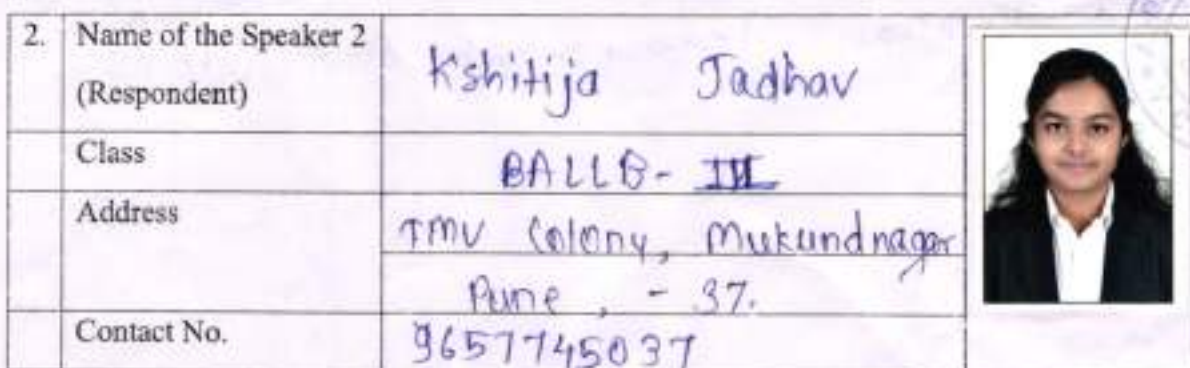 2. Name of the Speaker 2
(Respondent)
Kshitija Jadhav
Class
BALLB- III
Address
TMV Colony, Mukundnagar
Pune, - 37.
Contact No.
9657745037